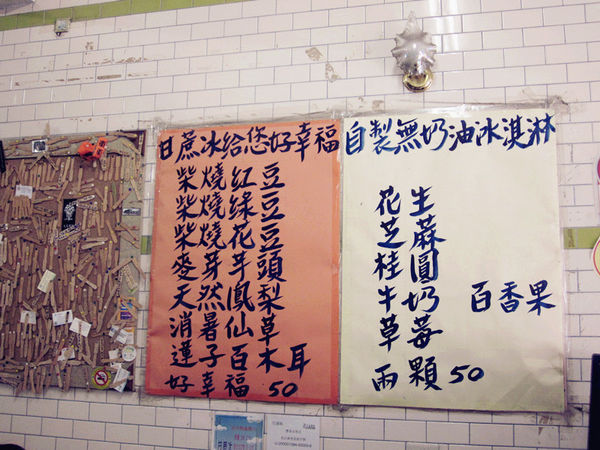 甘蔗冰給您好幸福
柴燒紅豆
柴燒綠豆
柴燒花豆
麥芽芋頭
天然鳳梨
消暑仙草
蓮子百木耳
好幸福 50
自製無奶油冰淇淋
花生
芝蔴
桂圓
牛奶 百香果
草莓
兩顆 50